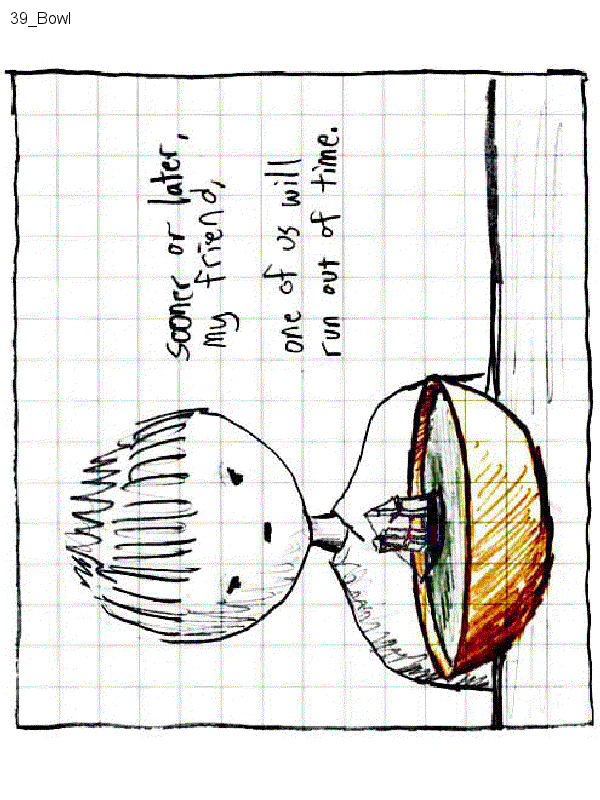 39_Bowl
sooner or later,
my friend,
one of us will
run out of time.